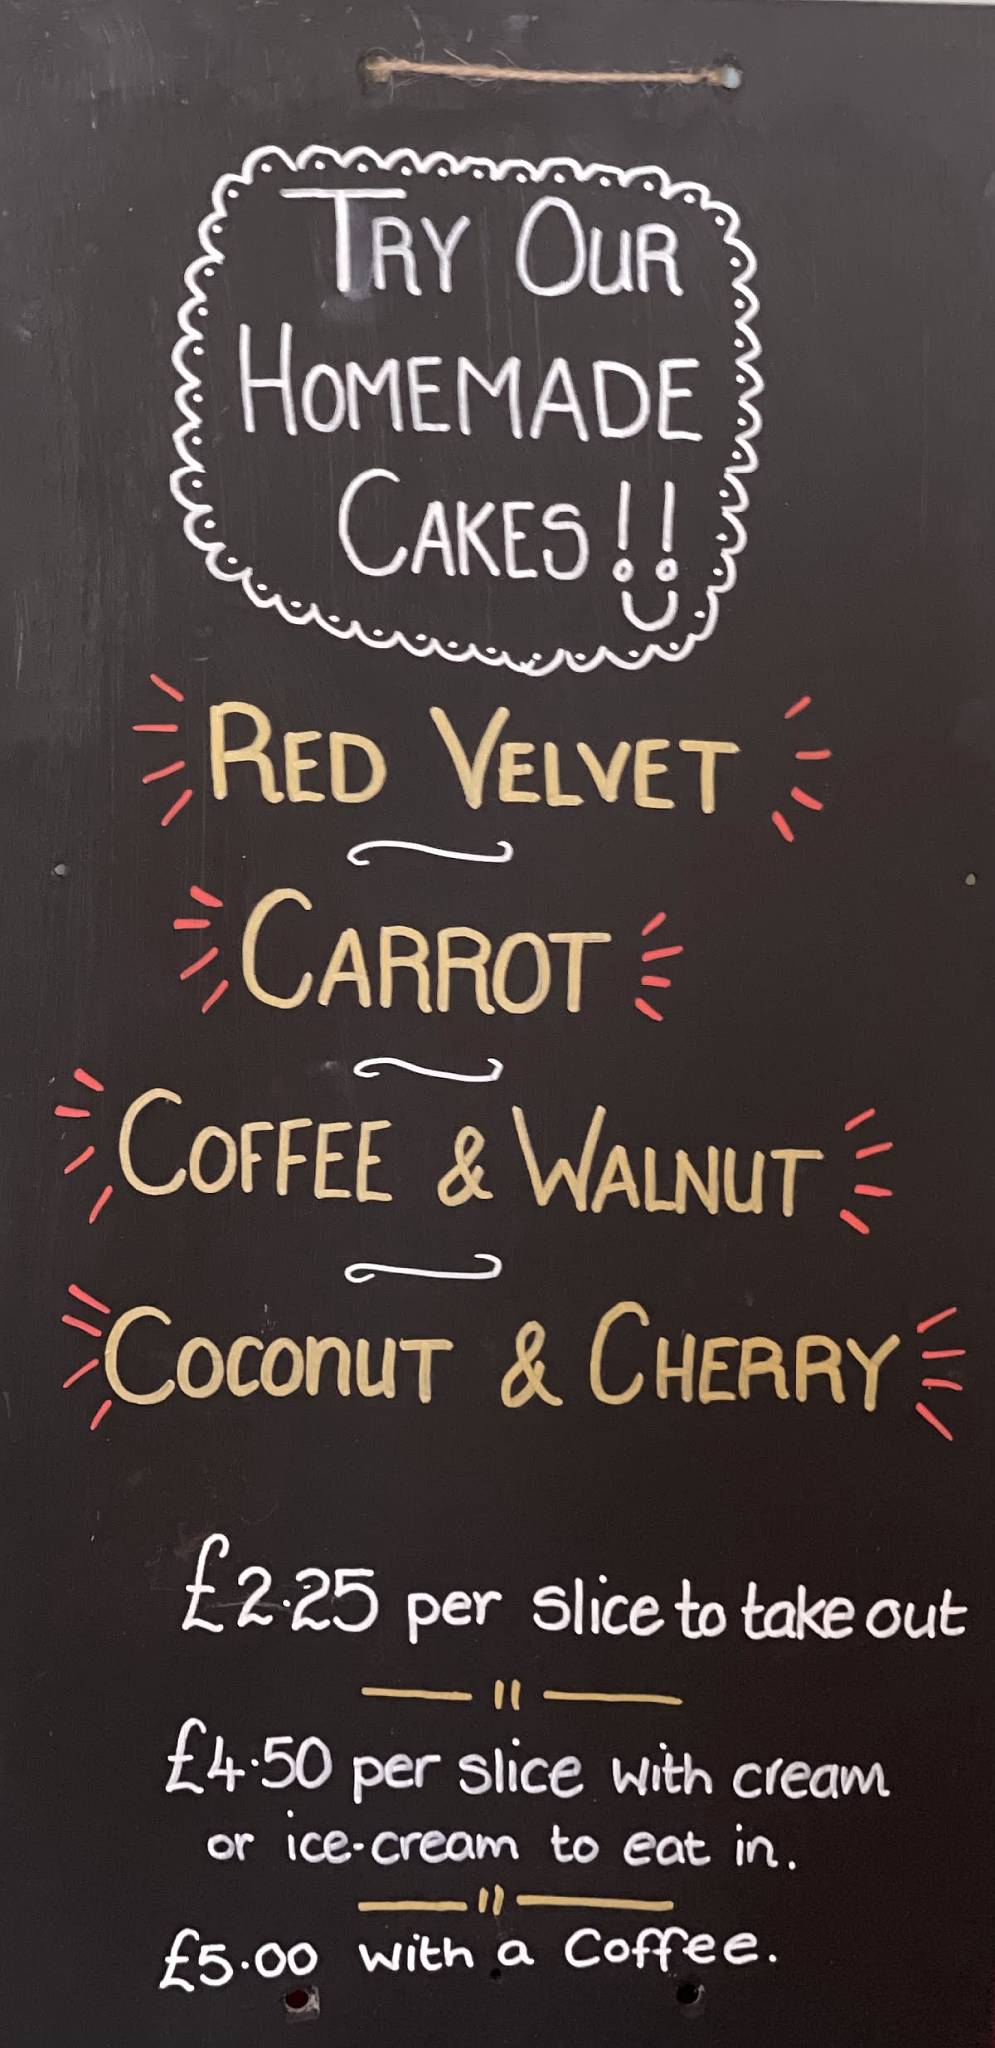 TRY OUR
HOMEMADE
CAKES!!
RED VELVET
CARROT
COFFEE & WALNUT
COCONUT & CHERRY
£2.25 per slice to take out
£4.50 per slice with cream
or ice-cream to eat in.
£5.00 with a Coffee.